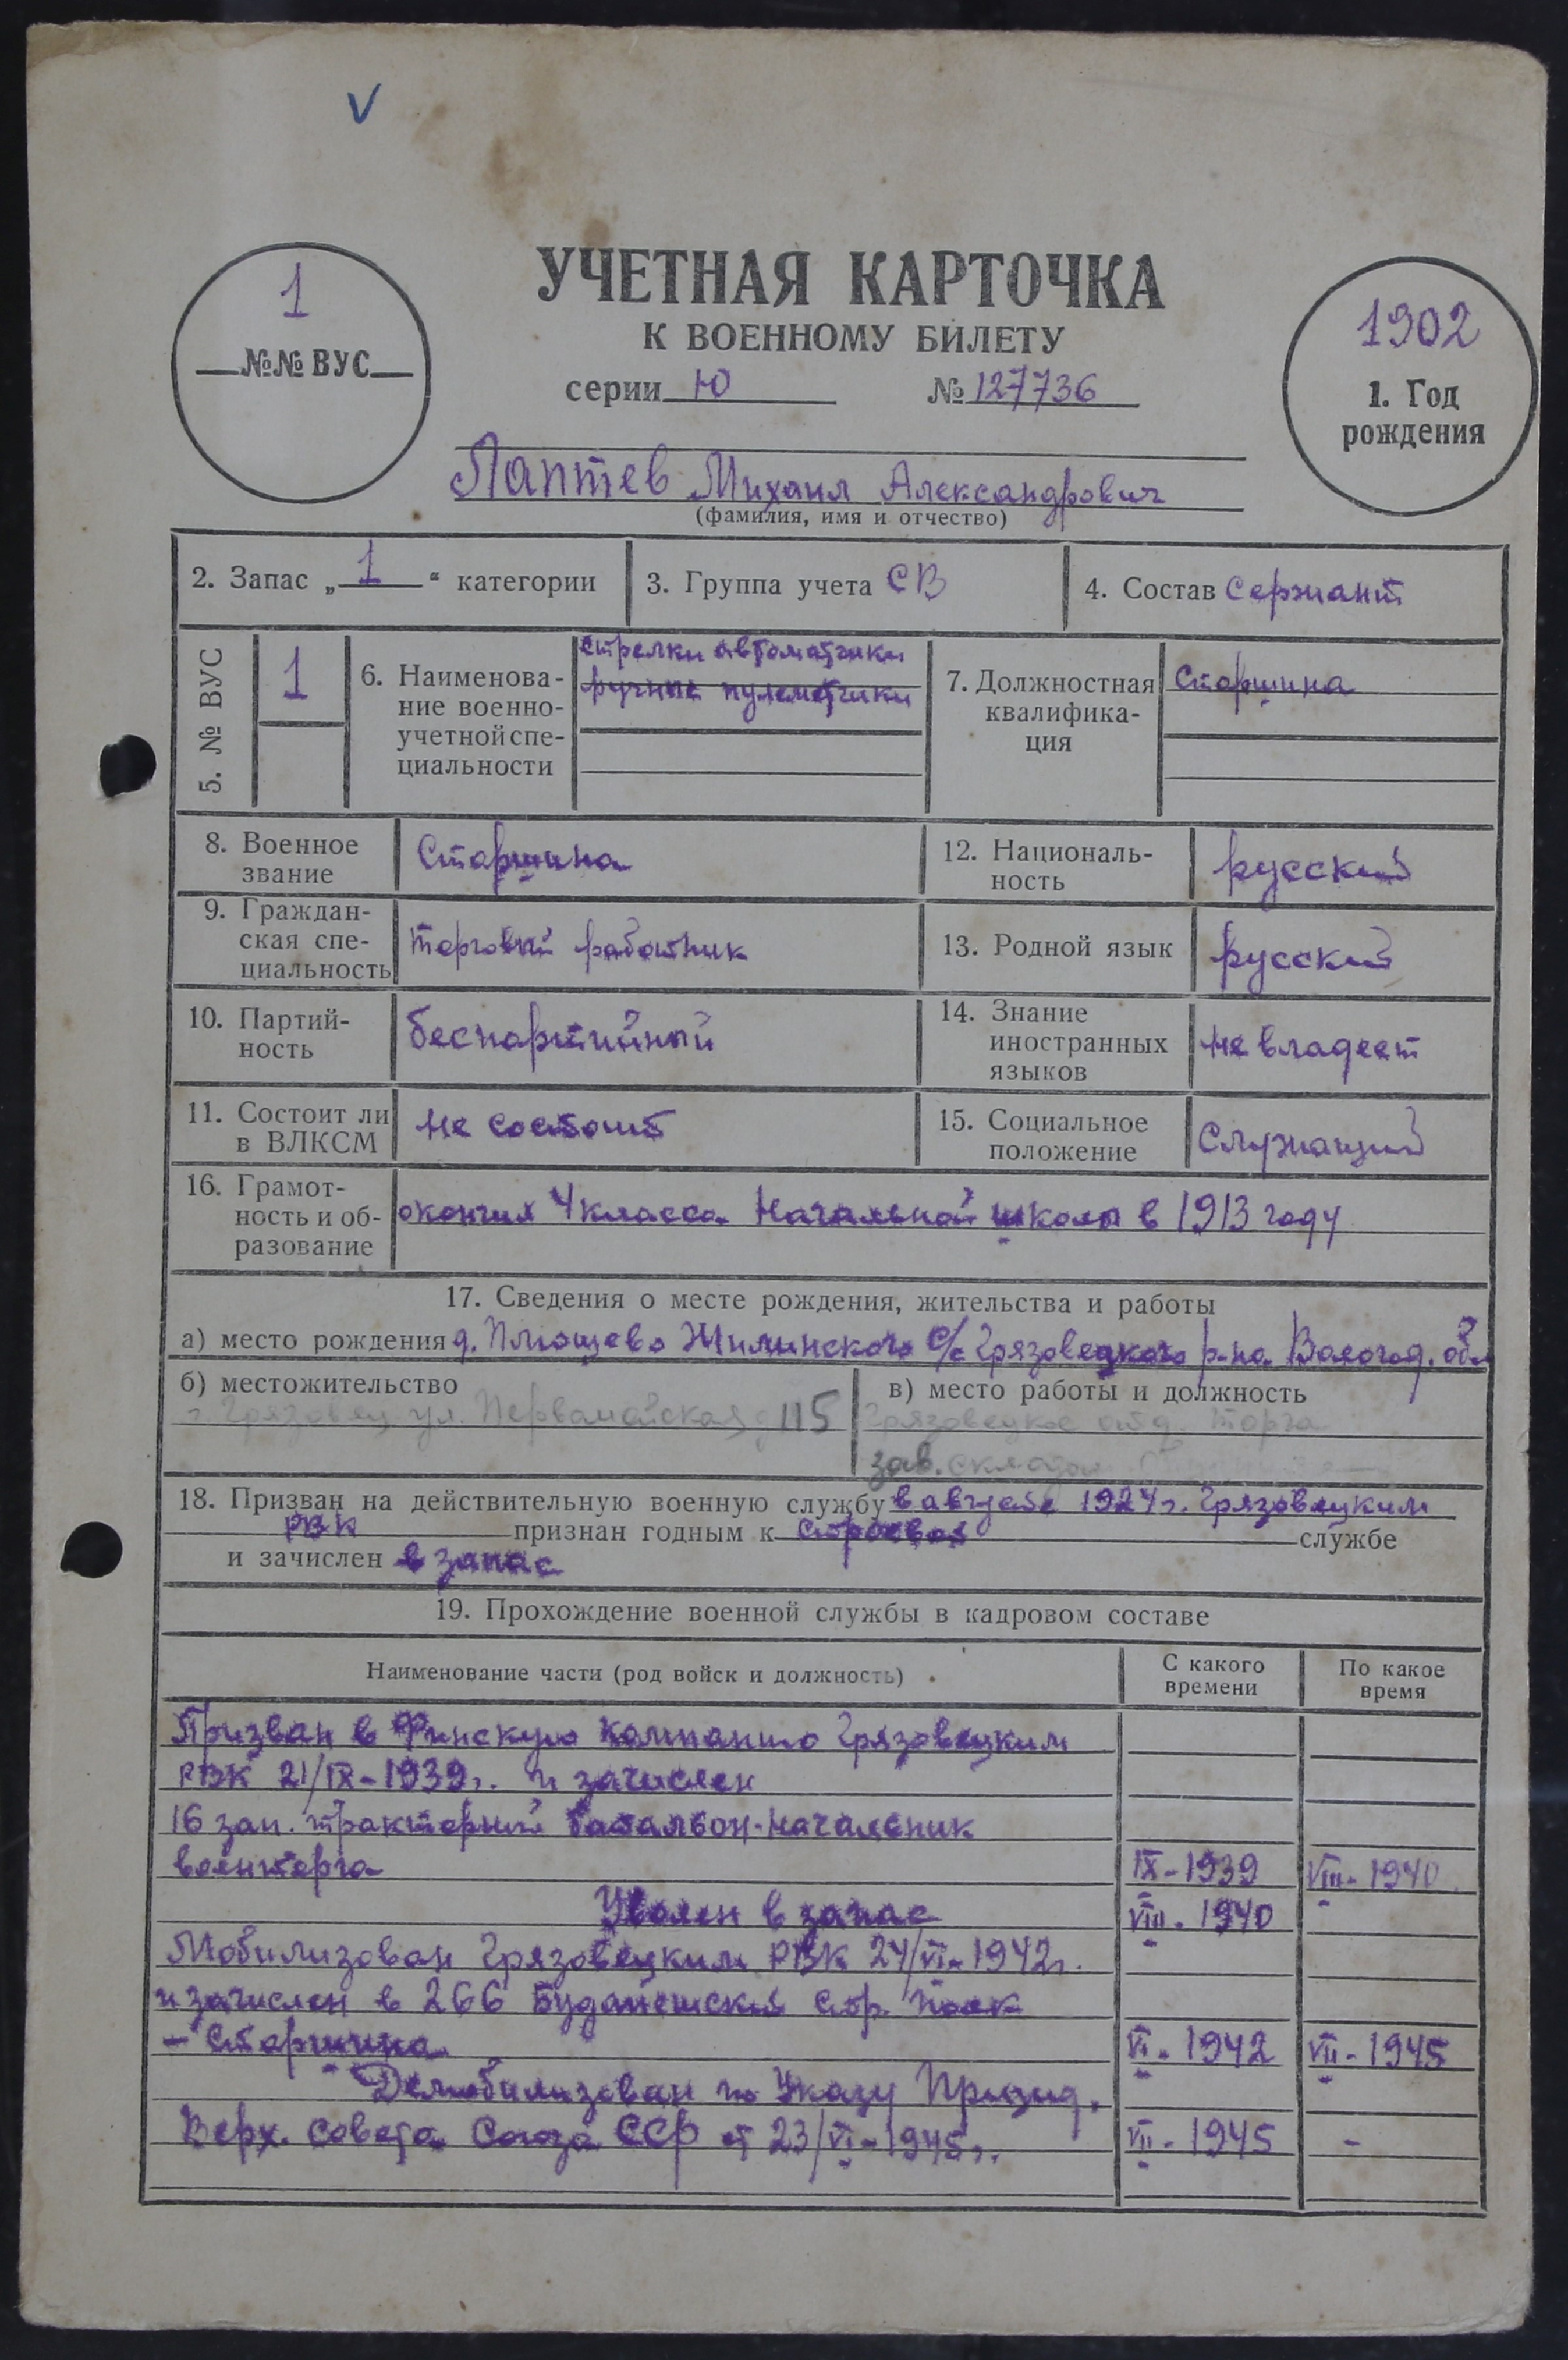 V
1
№№ ВУС
УЧЕТНАЯ КАРТОЧКА
К ВОЕННОМУ БИЛЕТУ
серии Ю № 127736
1902
1. Год
рождения
Лаптев Михаил Александрович
(фамилия, имя и отчество)
2. Запас „1“ категории
3. Группа учета СВ
4. Состав Сержант
5. № ВУС
1
6. Наименова-
ние военно-
учетной спе-
циальности
стрелки автоматчики
ручные пулеметчики
7. Должностная
квалифика-
ция
Старшина
8. Военное
звание
Старшина
12. Националь-
ность
русский
9. Граждан-
ская спе-
циальность
торговый работник
13. Родной язык
русский
10. Партий-
ность
беспартийный
14. Знание
иностранных
языков
не владеет
11. Состоит ли
в ВЛКСМ
не состоит
15. Социальное
положение
Служащий
16. Грамот-
ность и об-
разование
окончил 4 класса Начальной школы в 1913 году
17. Сведения о месте рождения, жительства и работы
а) место рождения д. Плющево Жилинского с/с Грязовецкого р-на Волог​од. обл
б) местожительство
г Грязовец ул. Первомайская 115
в) место работы и должность
Грязовецкое отд. торга
зав. складом
18. Призван на действительную военную службу в августе 1924 г. Грязовецким
РВК признан годным к строевой службе
и зачислен в запас
19. Прохождение военной службы в кадровом составе
Наименование части (род войск и должность)
С какого
времени
По какое
время
Призван в Финскую компанию Грязовецким
РВК 21/IX-1939г. и зачислен
16 зап. тракторный батальон-начальник
военторга IX-1939 VIII-1940
Уволен в запас VIII-1940
Мобилизован Грязовецким РВК 24/VI-1942г.
и зачислен в 266 Будапештский стр. полк
- старшина VI-1942 VII-1945
Демобилизован по Указу Призид.
Верх. Совета Союза ССР от 23/VI-1945г. VII-1945 -